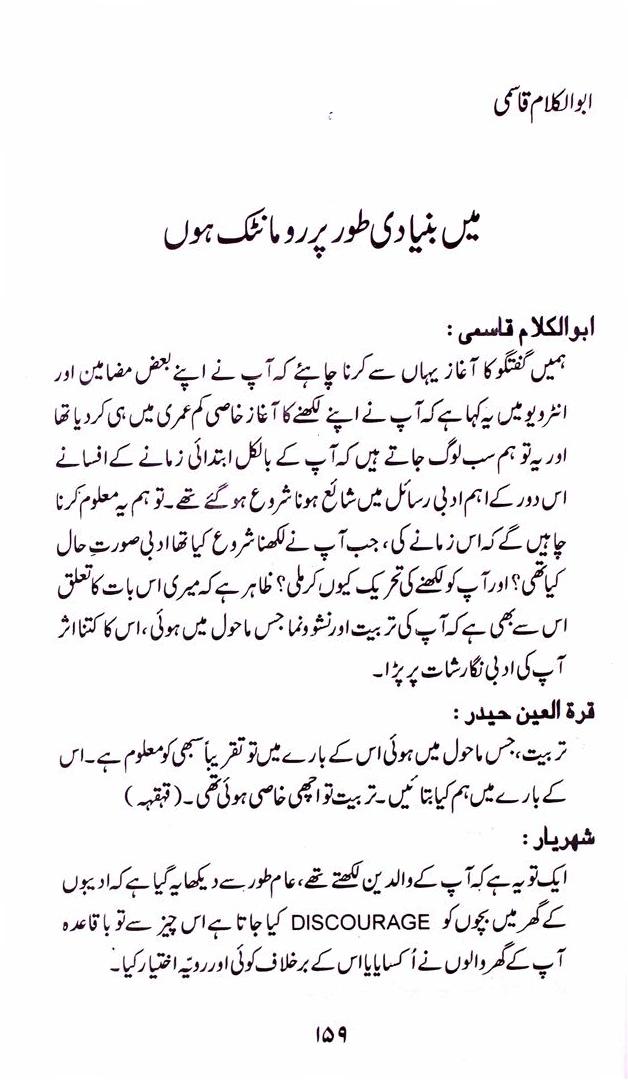 ابوالکلام قاسمی
میں بنیادی طور پر رومانٹک ہوں
ابوالکلام قاسمی :
ہمیں گفتگو کا آغاز یہاں سے کرنا چاہئے کہ آپ نے اپنے بعض مضامین اور
انٹرویو میں یہ کہا ہے کہ آپ نے اپنے لکھنے کا آغاز خاصی کم عمری میں ہی کر دیا تھا
اور یہ تو ہم سب لوگ جانتے ہیں کہ آپ کے بالکل ابتدائی زمانے کے افسانے
اس دور کے اہم ادبی رسائل میں شائع ہونا شروع ہو گئے تھے۔ تو ہم یہ معلوم کرنا
چاہیں گے کہ اس زمانے کی، جب آپ نے لکھنا شروع کیا تھا ادبی صورتِ حال
کیا تھی؟ اور آپ کو لکھنے کی تحریک کیوں کر ملی؟ ظاہر ہے کہ میری اس بات کا تعلق
اس سے بھی ہے کہ آپ کی تربیت اور نشوونما جس ماحول میں ہوئی، اس کا کتنا اثر
آپ کی ادبی نگارشات پر پڑا۔
قرۃ العین حیدر :
تربیت، جس ماحول میں ہوئی اس کے بارے میں تو تقریباً سبھی کو معلوم ہے۔ اس
کے بارے میں ہم کیا بتائیں۔ تربیت تو اچھی خاصی ہوئی تھی۔ (قہقہہ)
شهریار :
ایک تو یہ ہے کہ آپ کے والدین لکھتے تھے، عام طور سے دیکھا یہ گیا ہے کہ ادیبوں
کے گھر میں بچوں کو DISCOURAGE کیا جاتا ہے اس چیز سے تو باقاعدہ
آپ کے گھر والوں نے اُکسایا یا اس کے برخلاف کوئی اور رویّہ اختیار کیا۔
۱۵۹